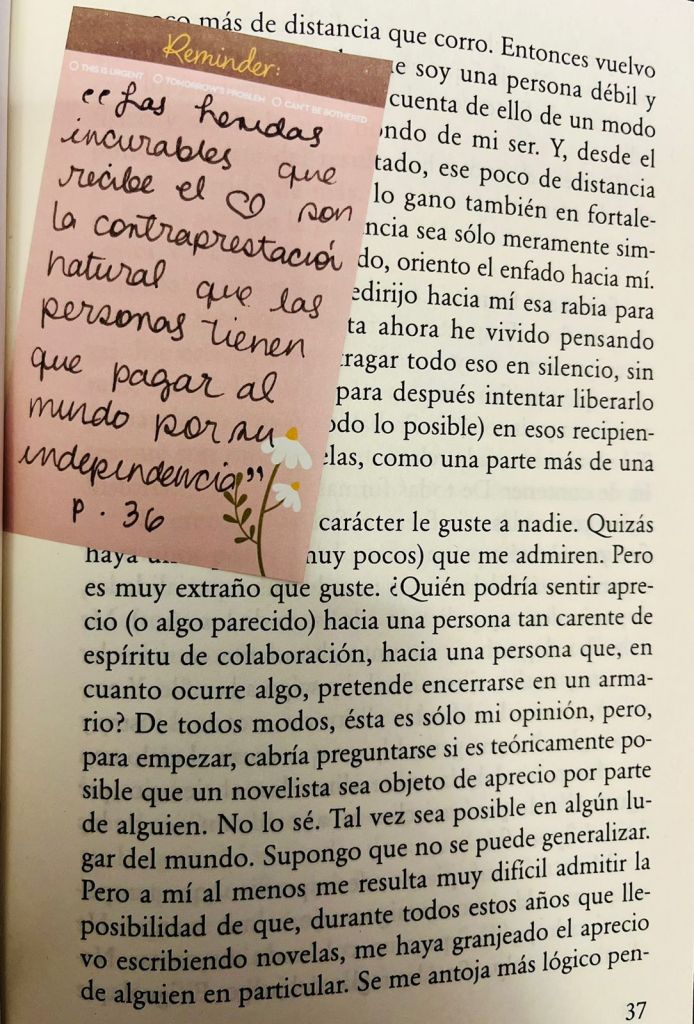 Reminder:
THIS IS URGENT TOMORROW'S PROBLEM CAN'T BE BOTHERED
“Las heridas
incurables que
recibe el ♡ son
la contraprestación
natural que las
personas tienen
que pagar al
mundo por su
independencia”
p. 36
más de distancia que corro. Entonces vuelvo
soy una persona débil y
cuenta de ello de un modo
de mi ser. Y, desde el
ese poco de distancia
lo gano también en fortale-
sea sólo meramente sim-
oriento el enfado hacia mí.
hacia mí esa rabia para
ahora he vivido pensando
todo eso en silencio, sin
para después intentar liberarlo
lo posible) en esos recipien-
como una parte más de una
carácter le guste a nadie. Quizás
haya muy pocos) que me admiren. Pero
es muy extraño que guste. ¿Quién podría sentir apre-
cio (o algo parecido) hacia una persona tan carente de
espíritu de colaboración, hacia una persona que, en
cuanto ocurre algo, pretende encerrarse en un arma-
rio? De todos modos, ésta es sólo mi opinión, pero,
para empezar, cabría preguntarse si es teóricamente po-
sible que un novelista sea objeto de aprecio por parte
de alguien. No lo sé. Tal vez sea posible en algún lu-
gar del mundo. Supongo que no se puede generalizar.
Pero a mí al menos me resulta muy difícil admitir la
posibilidad de que, durante todos estos años que lle-
vo escribiendo novelas, me haya granjeado el aprecio
de alguien en particular. Se me antoja más lógico pen-
37